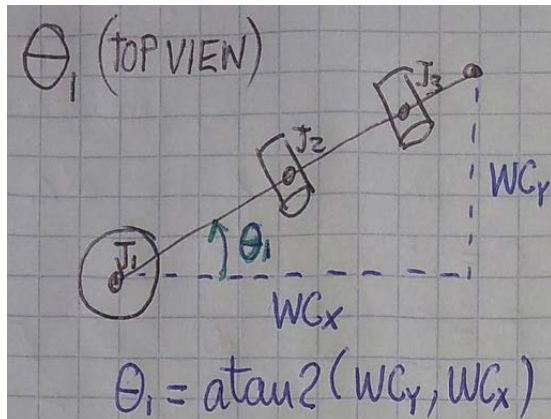 θ₁ (TOP VIEW)
J₃
J₂
WCy
J₁
θ₁
WCx
θ₁ = atan2(WCy, WCx)